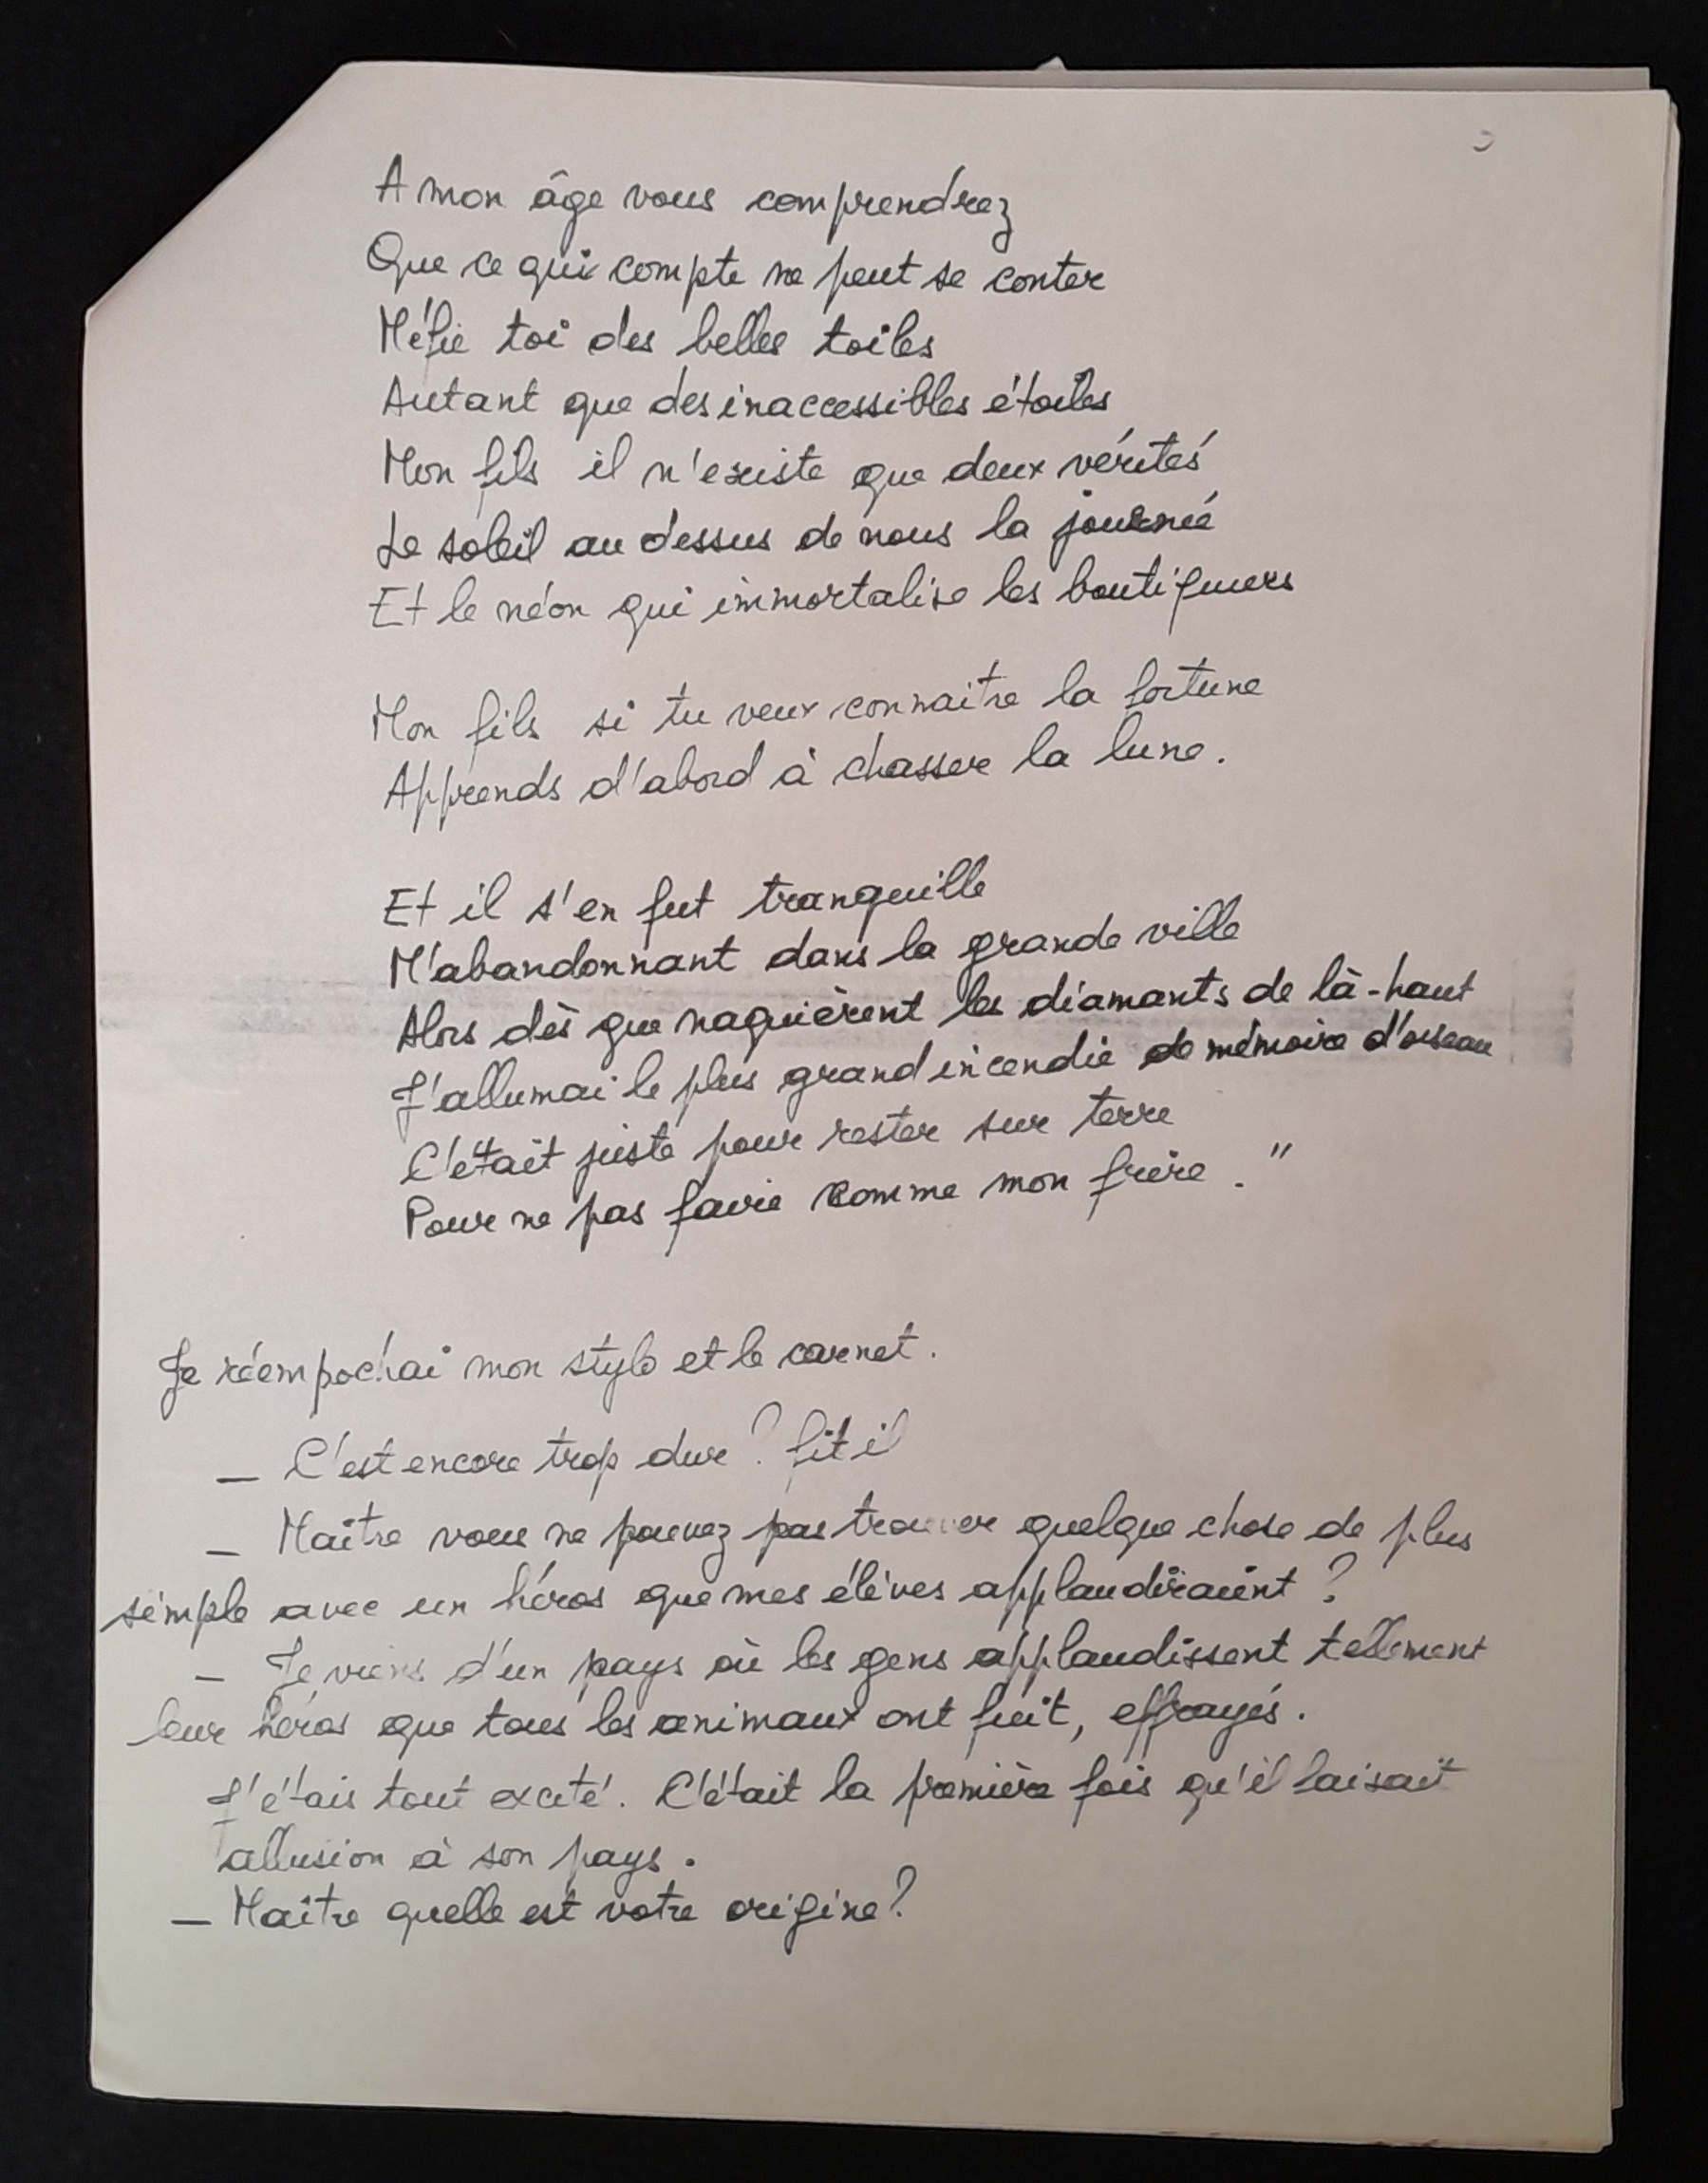 A mon âge vous comprendrez
Que ce qui compte ne peut se conter
Méfie toi des belles toiles
Autant que des inaccessibles étoiles
Mon fils il n'existe que deux vérités
Le soleil au dessus de nous la journée
Et le néon qui immortalise les boutiquiers
Mon fils si tu veux connaitre la fortune
Apprends d'abord à chasser la lune.
Et il s'en fut tranquille
M'abandonnant dans la grande ville
Alors dès que naquièrent les diamants de là-haut
J'allumai le plus grand incendie de mémoire d'oiseau
C'était juste pour rester sur terre
Pour ne pas faire comme mon frère. "
Je réempochai mon stylo et le carnet.
— C'est encore trop dur ? fit il
— Maître vous ne pouvez pas trouver quelque chose de plus
simple avec un héros que mes élèves applaudiraient ?
— Je viens d'un pays où les gens applaudissent tellement
leur héros que tous les animaux ont fuit, effrayés.
J'étais tout excité. C'était la première fois qu'il faisait
allusion à son pays.
— Maître quelle est votre origine ?